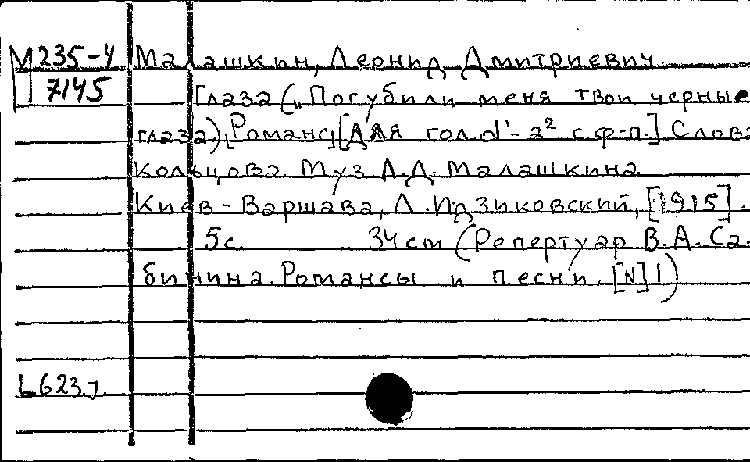 М235-4 Малашкин, Леонид Дмитриевич
7145 Глаза („Погубили меня твои черные
глаза) Романс [для гол. d¹-a² с ф-п.] Слова
Кольцова. Муз. Л.Д. Малашкина
Киев-Варшава, Л. Идзиковский, [1915].
5с. 34 cm (Репертуар В.А. Са-
бинина. Романсы и песни. [N] 1)
L623